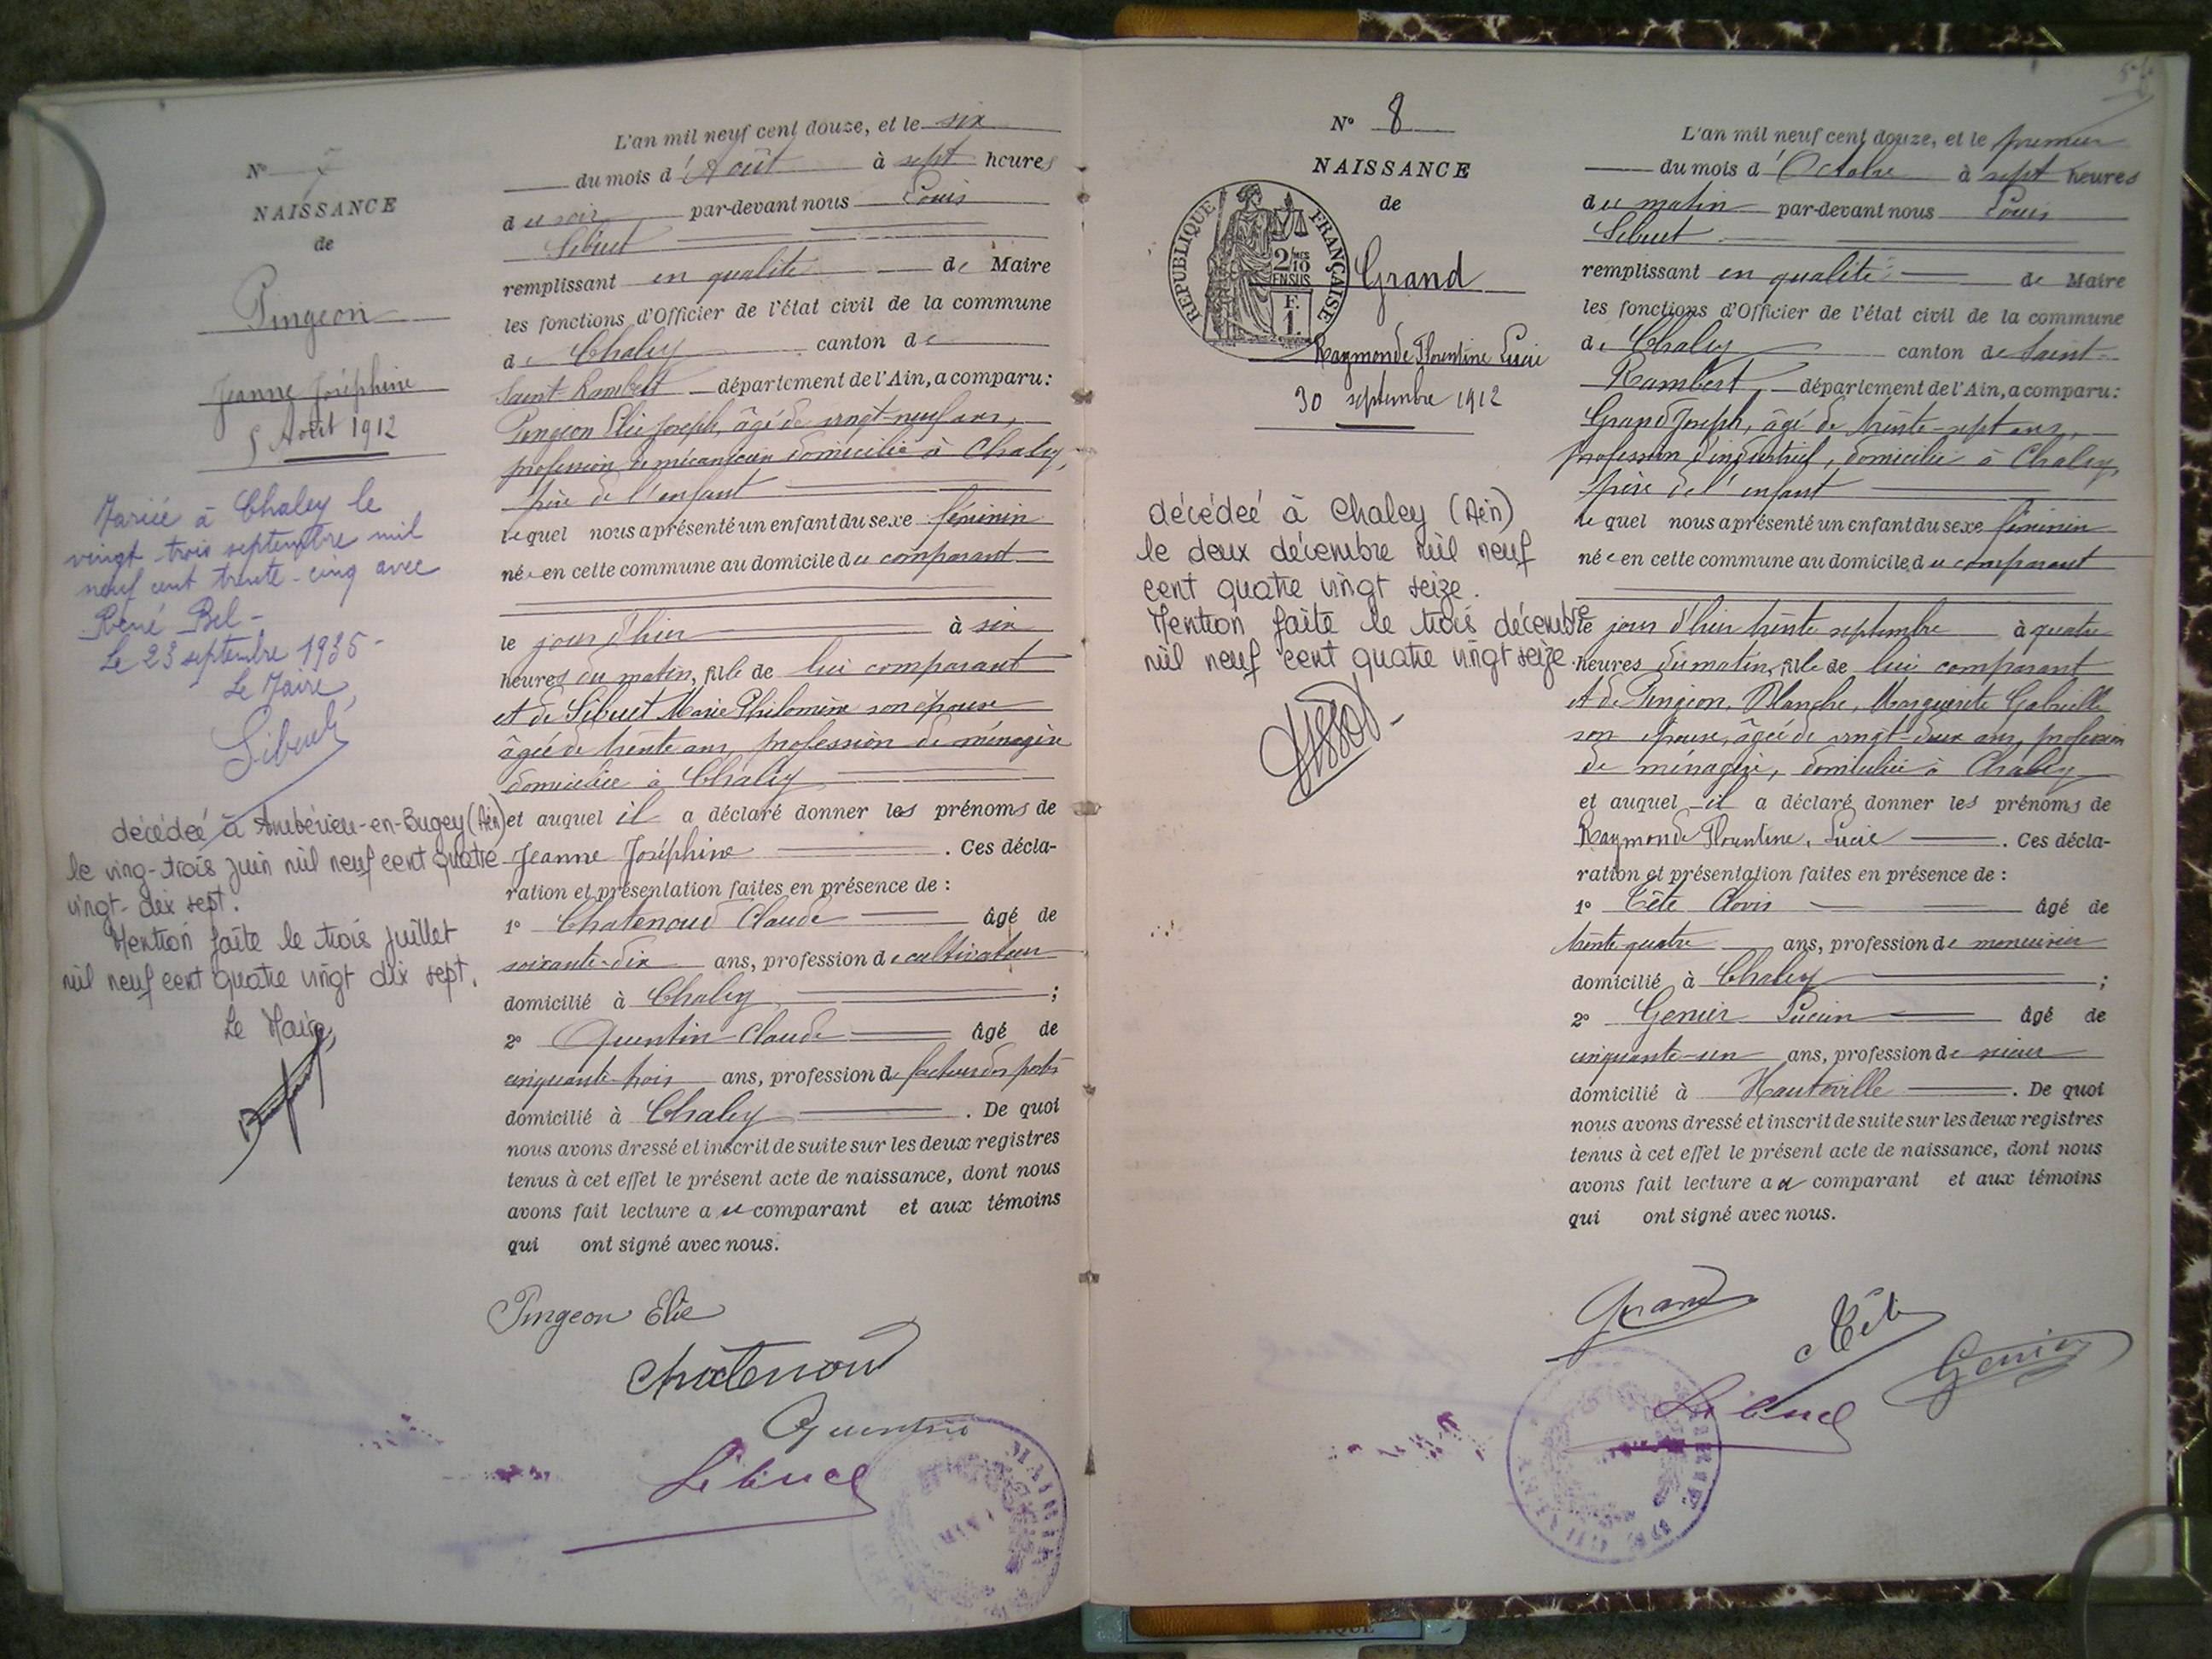 N° 7
NAISSANCE
de
Pingeon
Jeanne Joséphine
5 Août 1912
Mariée à Chaley le
vingt-trois septembre mil
neuf cent trente-cinq avec
René Bel -
Le 23 septembre 1935 -
Le Maire,
Sibuet
décédeé à Ambérieu-en-Bugey (Ain)
le ving-trois juin mil neuf cent quatre
vingt-dix sept.
Mention faîte le trois juillet
mil neuf cent quatre vingt dix sept.
Le Maire,
L'an mil neuf cent douze, et le six
du mois d'Août à sept heures
du soir par-devant nous Louis
Sibuet
remplissant en qualité de Maire
les fonctions d'Officier de l'état civil de la commune
de Chaley canton de
Saint-Rambert département de l'Ain, a comparu:
Pingeon Elie Joseph, âgé de vingt-neuf ans,
profession de mécanicien domicilié à Chaley,
père de l'enfant
lequel nous a présenté un enfant du sexe féminin
née en cette commune au domicile du comparant
le jour d'hier à six
heures du matin, fille de lui comparant
et de Sibuet Marie Philomène son épouse
âgée de trente ans, profession de ménagère
domiciliée à Chaley
et auquel il a déclaré donner les prénoms de
Jeanne Joséphine . Ces décla-
ration et présentation faites en présence de :
1° Chatenoud Claude âgé de
soixante-dix ans, profession de cultivateur
domicilié à Chaley ;
2° Quentin Claude âgé de
cinquante-trois ans, profession de facteur des postes
domicilié à Chaley . De quoi
nous avons dressé et inscrit de suite sur les deux registres
tenus à cet effet le présent acte de naissance, dont nous
avons fait lecture au comparant et aux témoins
qui ont signé avec nous.
Pingeon Elie
Chatenoud
Quentin
Sibuet
MAIRIE
N° 8
NAISSANCE
de
RÉPUBLIQUE FRANÇAISE
2/10
EN SUS
F.
1.
Grand
Raymonde Florentine Lucie
30 septembre 1912
décédeé à Chaley (Ain)
le deux décembre mil neuf
cent quatre vingt seize.
Mention faîte le trois décembre
mil neuf cent quatre vingt seize.
L'an mil neuf cent douze, et le premier
du mois d'Octobre à sept heures
du matin par-devant nous Louis
Sibuet
remplissant en qualité de Maire
les fonctions d'Officier de l'état civil de la commune
de Chaley canton de Saint-
Rambert département de l'Ain, a comparu:
Grand Joseph, âgé de trente-sept ans,
profession d'industriel, domicilié à Chaley,
père de l'enfant
lequel nous a présenté un enfant du sexe féminin
née en cette commune au domicile du comparant
le jour d'hier trente septembre à quatre
heures du matin, fille de lui comparant
et de Pingeon, Blanche, Marguerite Gabrielle
son épouse, âgée de vingt-deux ans, profession
de ménagère, domiciliée à Chaley
et auquel il a déclaré donner les prénoms de
Raymonde Florentine, Lucie . Ces décla-
ration et présentation faites en présence de :
1° Tête Clovis âgé de
trente-quatre ans, profession de menuisier
domicilié à Chaley ;
2° Genier Lucien âgé de
cinquante-un ans, profession de
domicilié à Hauteville . De quoi
nous avons dressé et inscrit de suite sur les deux registres
tenus à cet effet le présent acte de naissance, dont nous
avons fait lecture au comparant et aux témoins
qui ont signé avec nous.
Grand
Tête
Genier
Sibuet